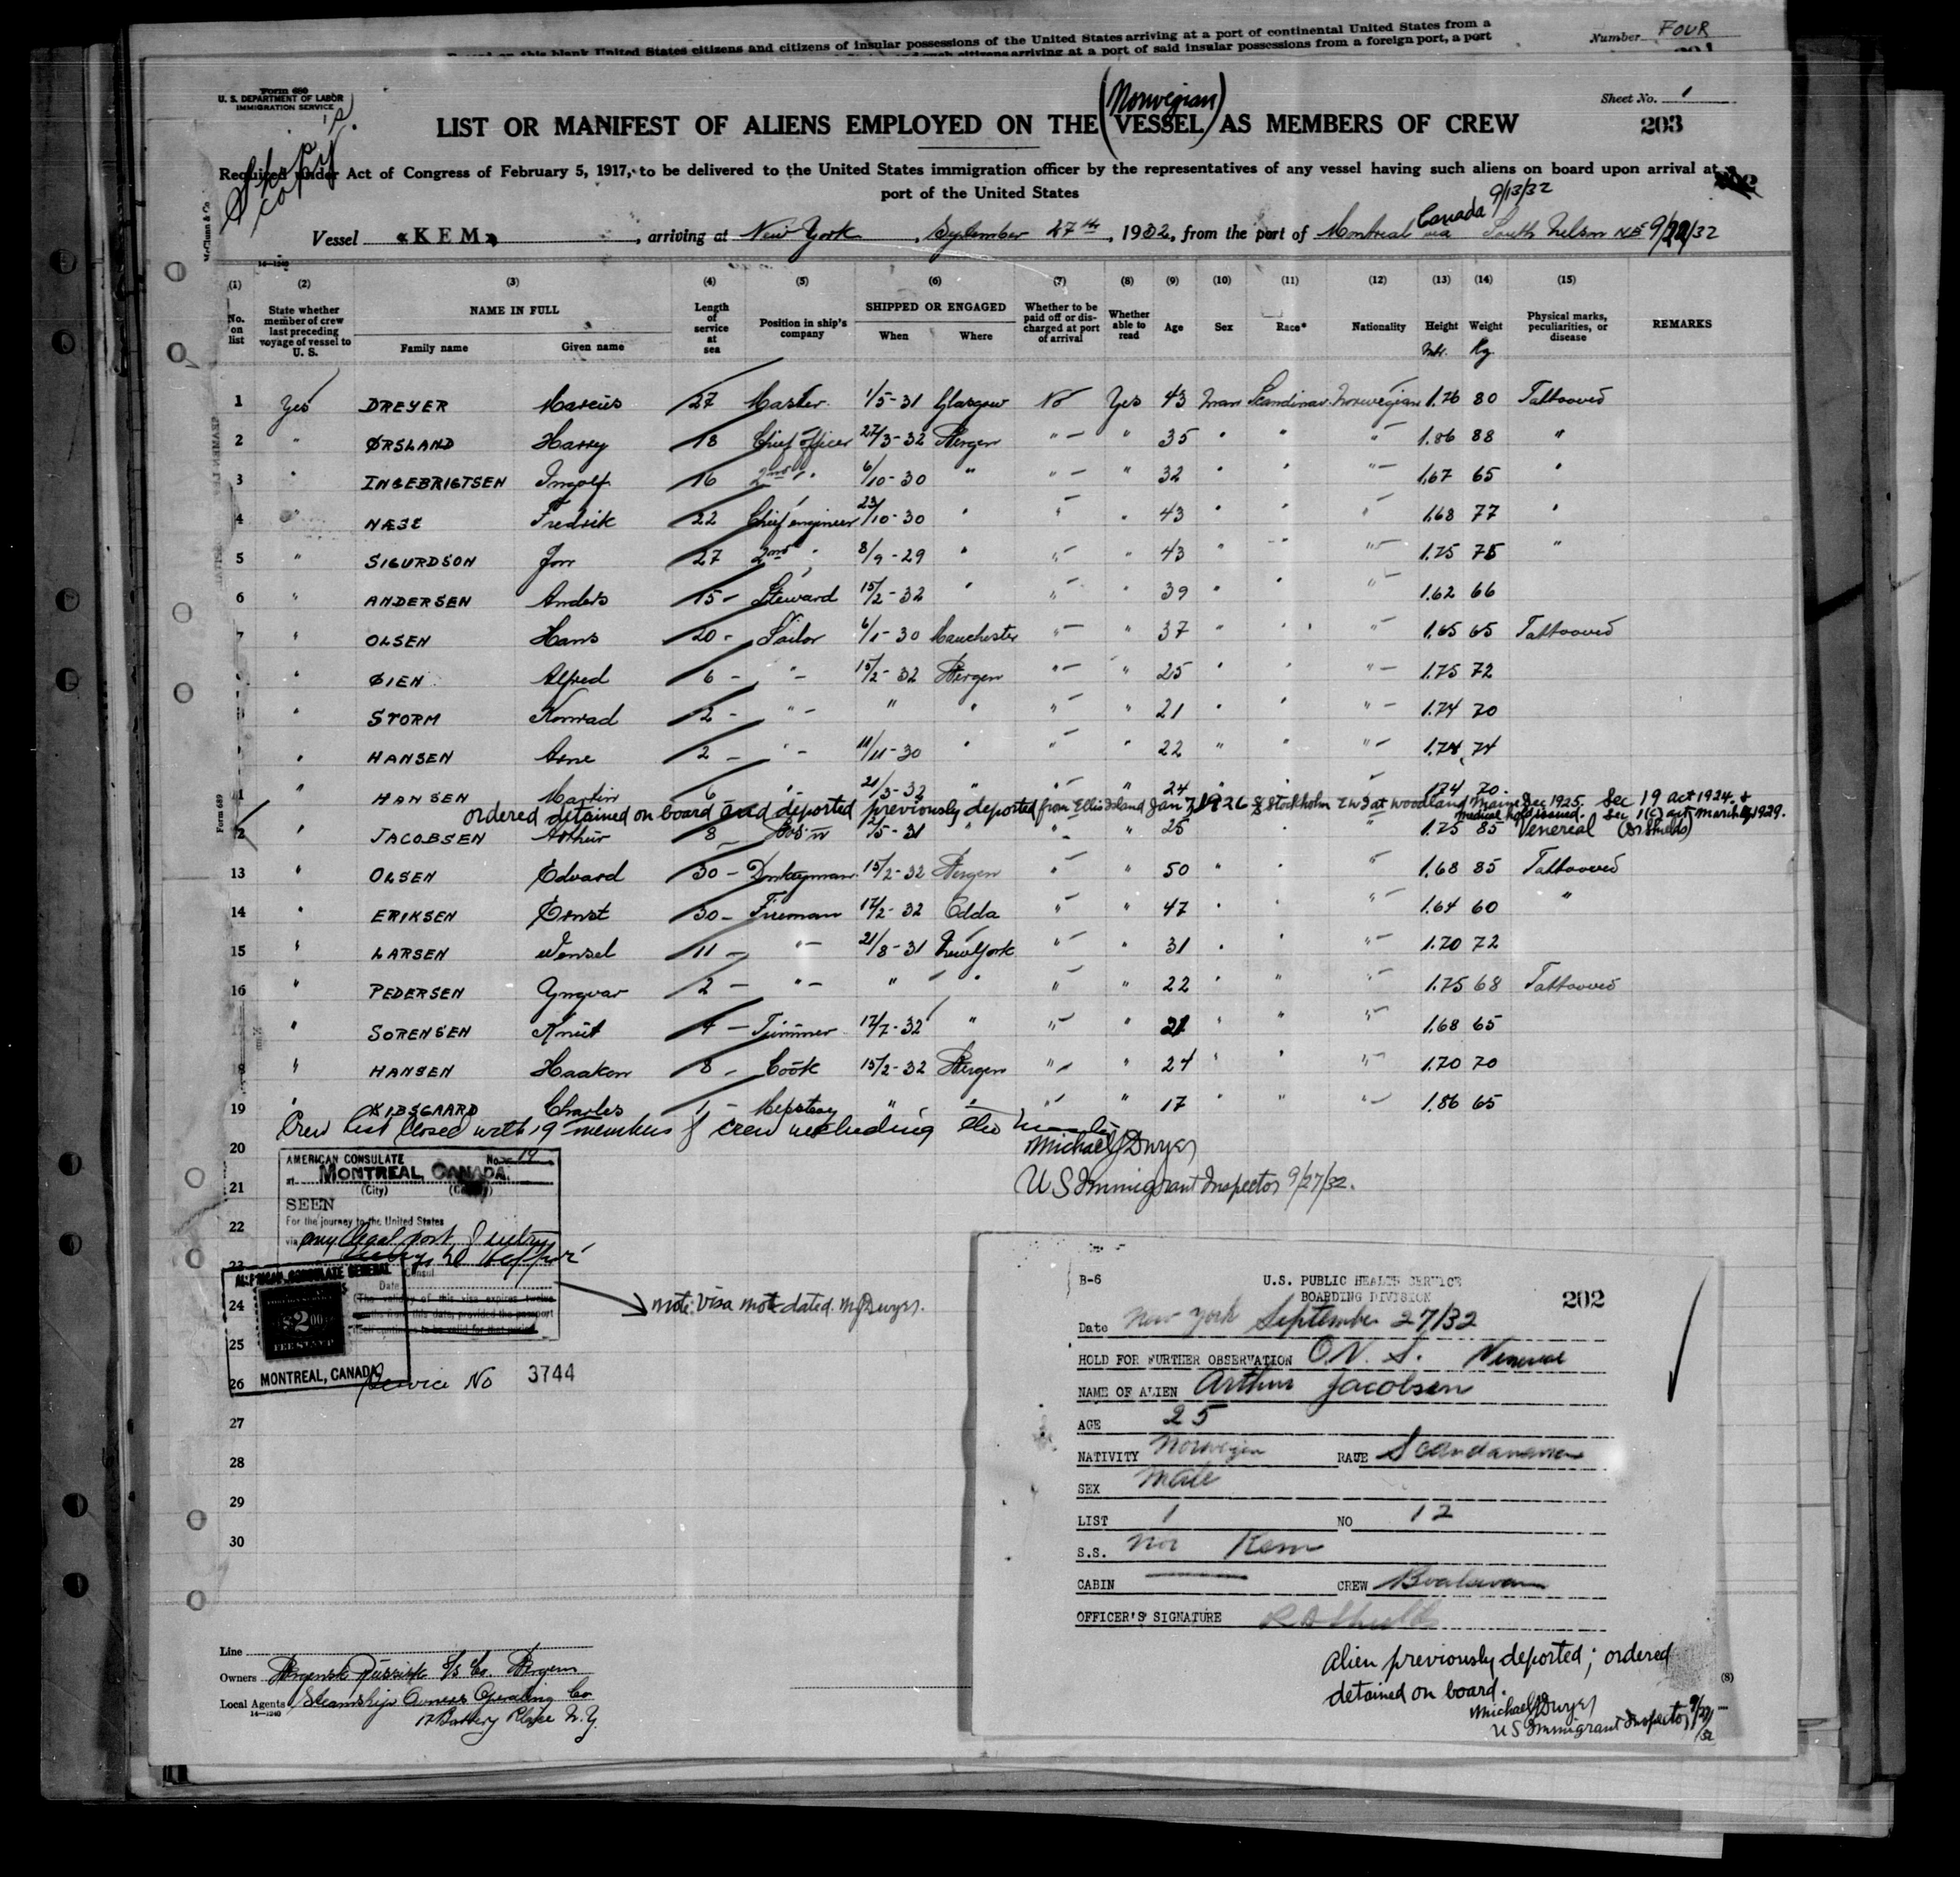 on this blank United States citizens and citizens of insular possessions of the United States arriving at a port of continental United States from a
citizens arriving at a port of said insular possessions from a foreign port, a port
Number FOUR
Form 689
U. S. DEPARTMENT OF LABOR
IMMIGRATION SERVICE
Ship's copy
(Norwegian)
Sheet No. 1
LIST OR MANIFEST OF ALIENS EMPLOYED ON THE (VESSEL) AS MEMBERS OF CREW
203
Required under Act of Congress of February 5, 1917, to be delivered to the United States immigration officer by the representatives of any vessel having such aliens on board upon arrival at
port of the United States
Canada 9/13/32
Vessel «KEM», arriving at New York, September 27th, 1932, from the port of Montreal via South Nelson NB 9/22/32
14-1240
(1) (2) (3) (4) (5) (6) (7) (8) (9) (10) (11) (12) (13) (14) (15)
No. on list State whether member of crew last preceding voyage of vessel to U. S. NAME IN FULL Family name Given name Length of service at sea Position in ship's company SHIPPED OR ENGAGED When Where Whether to be paid off or discharged at port of arrival Whether able to read Age Sex Race* Nationality Height Mtr. Weight Kg. Physical marks, peculiarities, or disease REMARKS
1 Yes DREYER Marcus 27 Master 1/5-31 Glasgow No Yes 43 Man Scandinav. Norwegian 1.76 80 Tattooved
2 " ØRSLAND Harry 18 Chief officer 27/3-32 Bergen " - " 35 " " " - 1.86 88 "
3 " INGEBRIGTSEN Ingolf 16 2nd " 6/10-30 " " - " 32 " " " - 1.67 65 "
4 " NÆSE Fredrik 22 Chief engineer 23/10-30 " " - " 43 " " " - 1.68 77 "
5 " SIGURDSON Jon 27 2nd " 8/9-29 " " - " 43 " " " - 1.75 75 "
6 " ANDERSEN Anders 15 - Steward 15/2-32 " " - " 39 " " " - 1.62 66
7 " OLSEN Hans 20 - Sailor 6/1-30 Manchester " - " 37 " " " - 1.65 65 Tattooved
" ØIEN Alfred 6 - " - 15/2-32 Bergen " - " 25 " " " - 1.75 72
" STORM Konrad 2 - " - " " " - " 21 " " " - 1.74 70
" HANSEN Arne 2 - " - 11/11-30 " " - " 22 " " " - 1.74 74
1 " HANSEN Martin 6 " - 21/3-32 " " - " 24 " " " 1.74 70
ordered detained on board and deported previously deported from Ellis Island Jan 7, 1926 SS Stockholm EWI at Woodland Maine Dec 1925. Sec 19 act 1924 +
medical hold issued. Sec 1(c) act March 4, 1929.
2 " JACOBSEN Arthur 8 - Bos'n /5-31 " " - " 25 " " " 1.75 85 Venereal (Dr Shields)
13 " OLSEN Edvard 30 - Donkeyman 15/2-32 Bergen " - " 50 " " " 1.68 85 Tattooved
14 " ERIKSEN Ernst 30 - Fireman 17/2-32 Odda " - " 47 " " " - 1.64 60 "
15 " LARSEN Wensel 11 - " - 21/8-31 New York " - " 31 " " " - 1.70 72
16 " PEDERSEN Yngvar 2 - " - " " " - " 22 " " " - 1.75 68 Tattooved
" SORENSEN Knut 4 - Trimmer 17/7-32 " " - " 21 " " " - 1.68 65
" HANSEN Haakon 8 - Cook 15/2-32 Bergen " - " 24 " " " - 1.70 70
19 " KIBSGAARD Charles 1 - Messboy " " " - " 17 " " " - 1.86 65
Crew list closed with 19 members of crew including the master
Michael J Dwyer
US Immigrant Inspector 9/27/32.
20
21
22
23
24
25
26
27
28
29
30
AMERICAN CONSULATE No. 19
at MONTREAL, CANADA.
(City) (Country)
SEEN
For the journey to the United States
via any legal port of entry
Consul
Date
(The validity of this visa expires twelve
months from this date, provided the passport
itself continues to be valid for that period.)
AMERICAN CONSULATE GENERAL
$2.00
FEE STAMP
MONTREAL, CANADA
note: Visa not dated. MJDwyer.
Service No 3744
B-6
U.S. PUBLIC HEALTH SERVICE
BOARDING DIVISION
202
Date New York September 27/32
HOLD FOR FURTHER OBSERVATION O.N.S. Venereal
NAME OF ALIEN Arthur Jacobsen
AGE 25
NATIVITY Norwegian RACE Scandanavian
SEX Male
LIST 1 NO 12
S.S. Nor Kem
CABIN CREW Boatswain
OFFICER'S SIGNATURE R D Shields
alien previously deported; ordered
detained on board.
Michael J Dwyer
US Immigrant Inspector 9/27/32
(8)
Line
Owners Bergensk Russisk S/S Co. Bergen
Local Agents Steamship Owners Operating Co
14-1240
17 Battery Place N.Y.